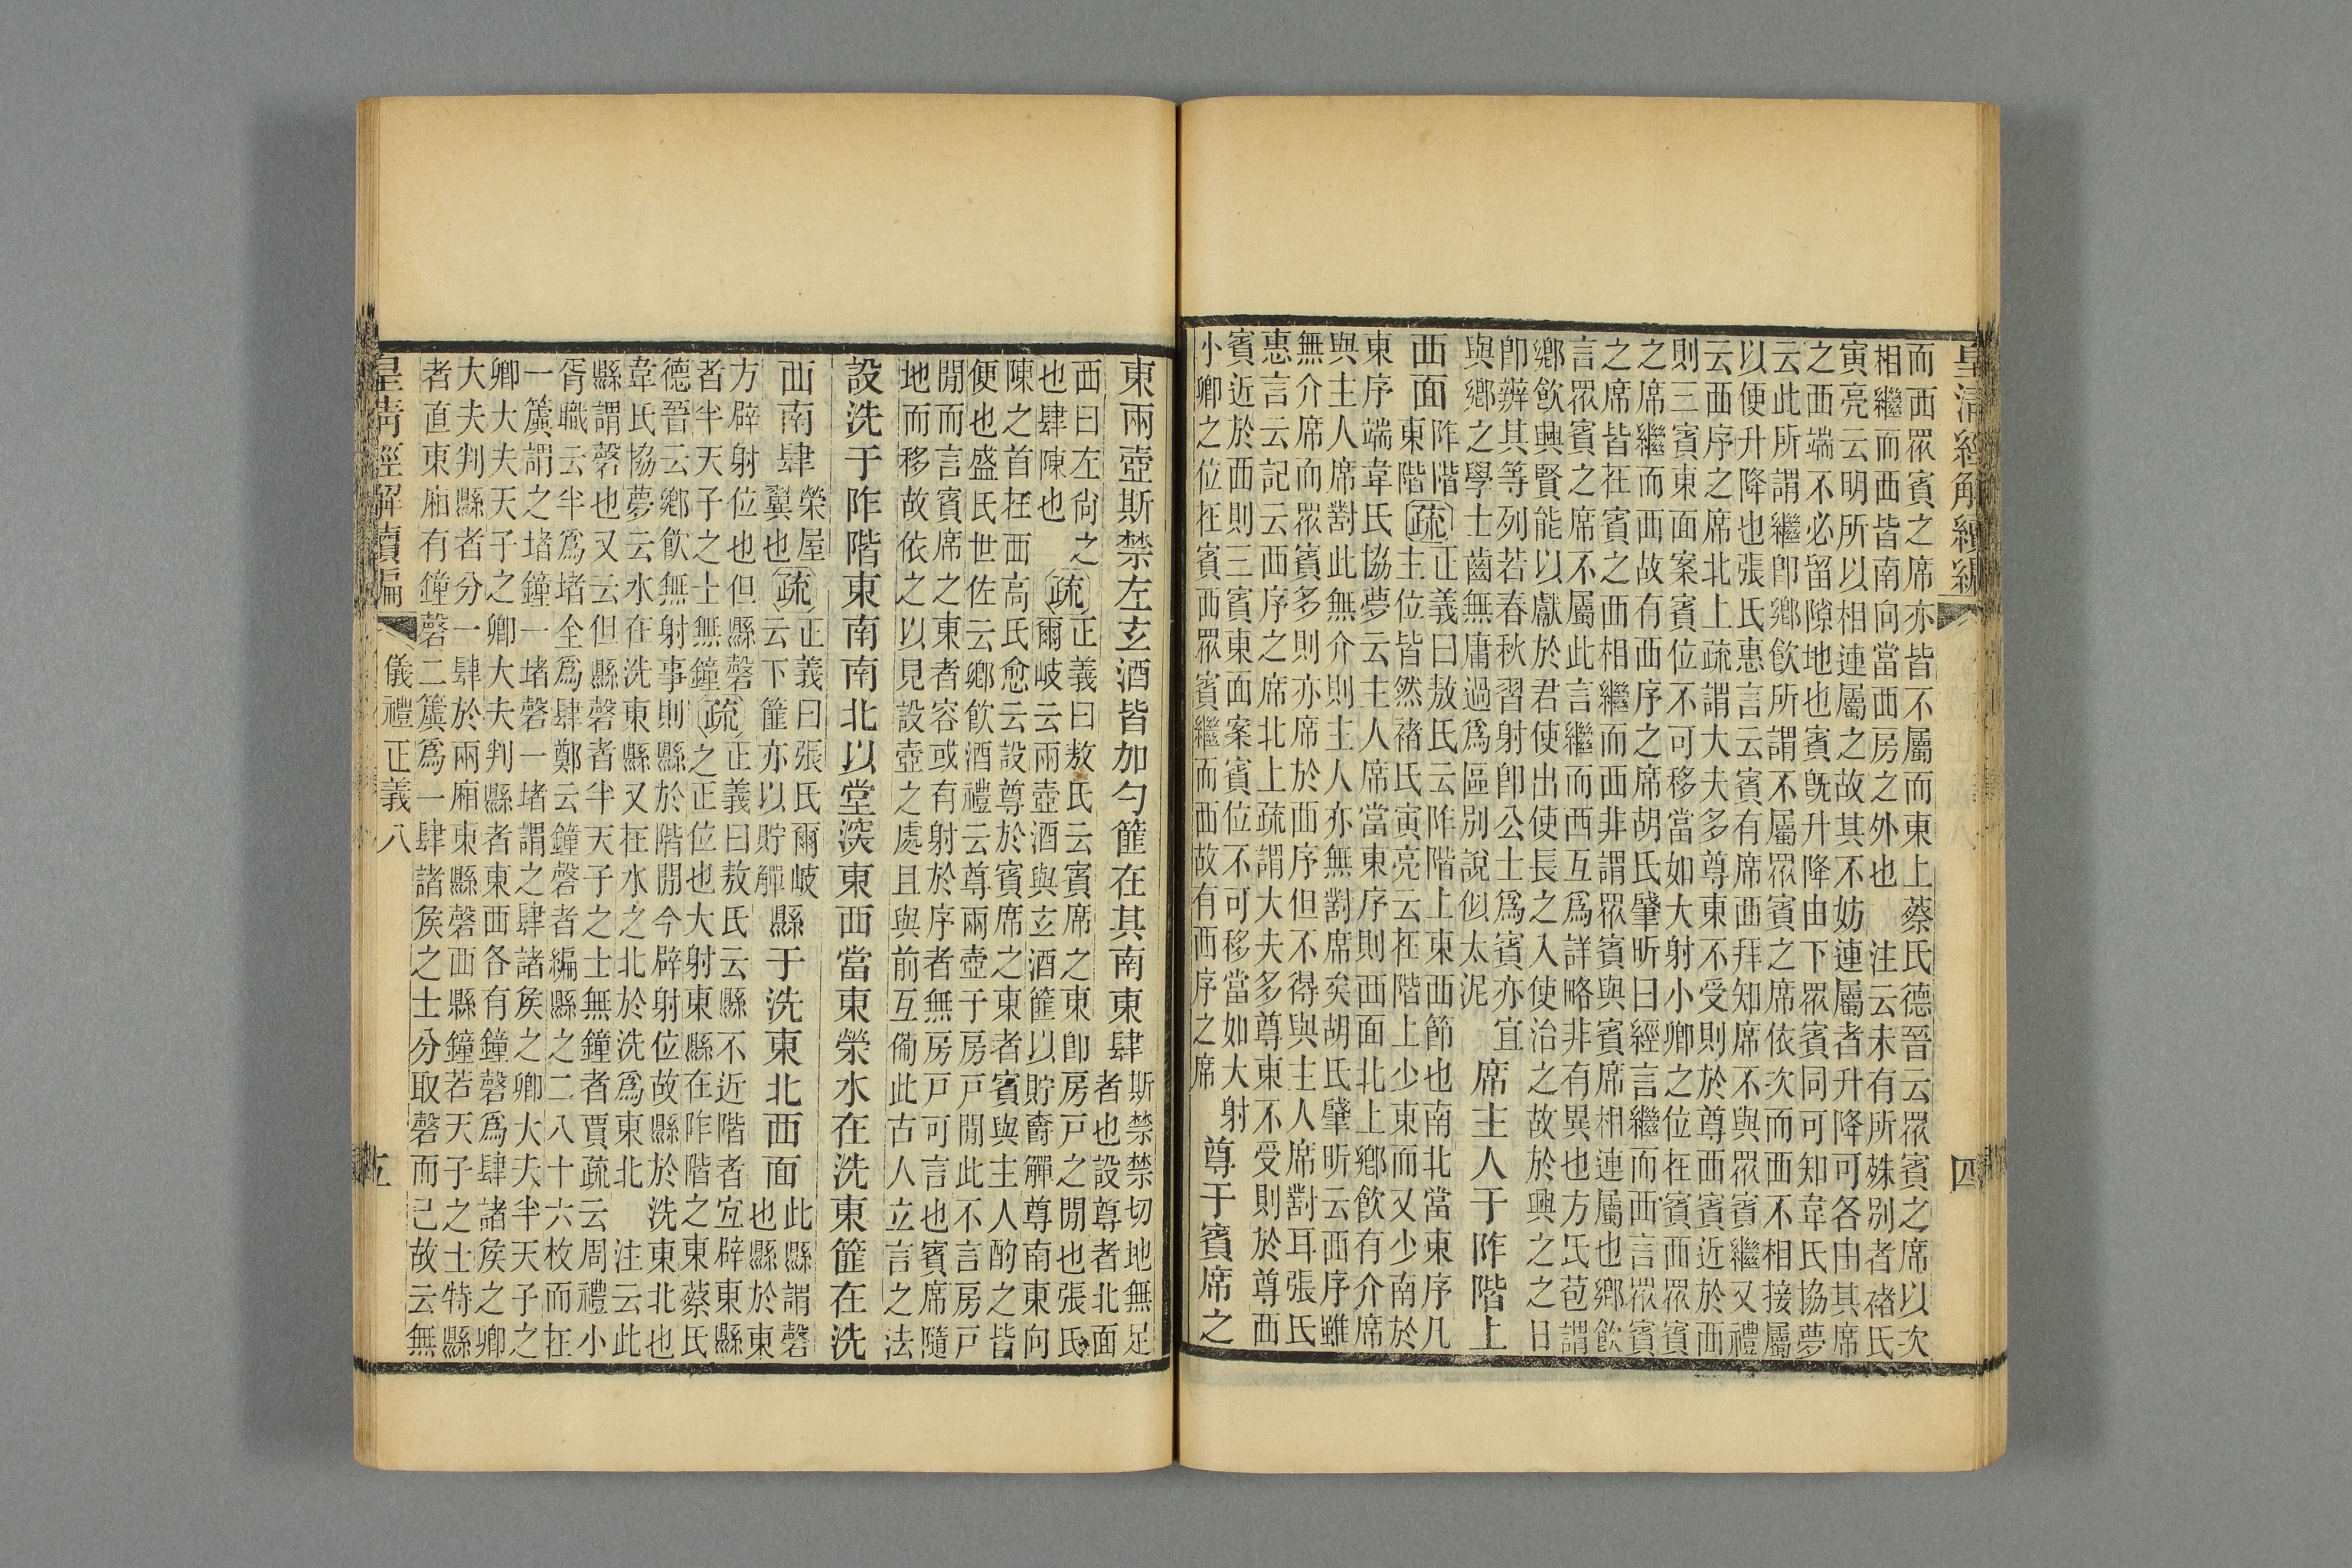 皇清經解續編
四
而西眾賓之席亦皆不屬而東上蔡氏德晉云眾賓之席以次
相繼而西皆南向當西房之外也　注云未有所殊別者褚氏
寅亮云明所以相連屬之故其不妨連屬者升降可各由其席
之西端不必留隙地也賓既升降由下眾賓同可知韋氏協夢
云此所謂繼卽鄉飮所謂不屬眾賓之席依次而西不相接屬
以便升降也張氏惠言云賓有席西拜知席不與眾賓繼又禮
云西序之席北上疏謂大夫多尊東不受則於尊西賓近於西
則三賓東面案賓位不可移當如大射小卿之位在賓西眾賓
之席繼而西故有西序之席胡氏肈昕曰經言繼而西言眾賓
之席皆在賓之西相繼而西非謂眾賓與賓席相連屬也鄉飮
言眾賓之席不屬此言繼而西互爲詳略非有異也方氏苞謂
鄉飮興賢能以獻於君使出使長之入使治之故於興之之日
卽辨其等列若春秋習射卽公士爲賓亦宜
與鄉之學士齒無庸過爲區別說似太泥
席主人于阼階上
西面
阼階
東階
疏
正義曰敖氏云阼階上東西節也南北當東序几
主位皆然褚氏寅亮云在階上少東而又少南於
東序端韋氏協夢云主人席當東序則西面北上鄉飮有介席
與主人席對此無介則主人亦無對席矣胡氏肈昕云西序雖
無介席而眾賓多則亦席於西序但不得與主人席對耳張氏
惠言云記云西序之席北上疏謂大夫多尊東不受則於尊西
賓近於西則三賓東面案賓位不可移當如大射
小卿之位在賓西眾賓繼而西故有西序之席
尊于賓席之
東兩壺斯禁左玄酒皆加勺篚在其南東肆
斯禁禁切地無足
者也設尊者北面
西曰左尙之
也肆陳也
疏
正義曰敖氏云賓席之東卽房戸之閒也張氏
爾岐云兩壺酒與玄酒篚以貯爵觶尊南東向
陳之首在西高氏愈云設尊於賓席之東者賓與主人酌之皆
便也盛氏世佐云鄉飮酒禮云尊兩壺于房戸閒此不言房戸
閒而言賓席之東者容或有射於序者無房戸可言也賓席隨
地而移故依之以見設壺之處且與前互備此古人立言之法
設洗于阼階東南南北以堂深東西當東榮水在洗東篚在洗
西南肆
榮屋
翼也
疏
正義曰張氏爾岐
云下篚亦以貯觶
縣于洗東北西面
此縣謂磬
也縣於東
方辟射位也但縣磬
者半天子之士無鐘
疏
正義曰敖氏云縣不近階者宜辟東縣
之正位也大射東縣在阼階之東蔡氏
德晉云鄉飮無射事則縣於階閒今辟射位故縣於洗東北也
韋氏協夢云水在洗東縣又在水之北於洗爲東北　注云此
縣謂磬也又云但縣磬者半天子之士無鐘者賈疏云周禮小
胥職云半爲堵全爲肆鄭云鐘磬者編縣之二八十六枚而在
一簴謂之堵鐘一堵磬一堵謂之肆諸矦之卿大夫半天子之
卿大夫天子之卿大夫判縣者東西各有鐘磬爲肆諸矦之卿
大夫判縣者分一肆於兩廂東縣磬西縣鐘若天子之士特縣
者直東廂有鐘磬二簴爲一肆諸矦之士分取磬而已故云無
皇清經解續編
儀禮正義八
五